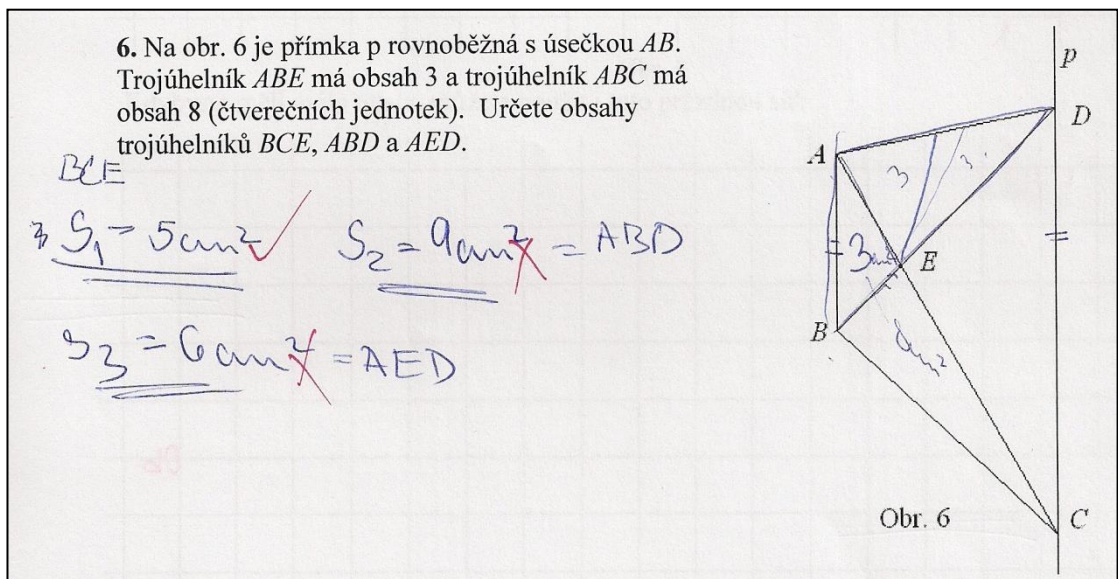 6. Na obr. 6 je přímka p rovnoběžná s úsečkou AB.
Trojúhelník ABE má obsah 3 a trojúhelník ABC má
obsah 8 (čtverečních jednotek). Určete obsahy
trojúhelníků BCE, ABD a AED.
BCE
S₁ = 5cm²
S₂ = 9cm² = ABD
S₃ = 6cm² = AED
p
D
A
3
3
3cm²
E
B
Obr. 6
C